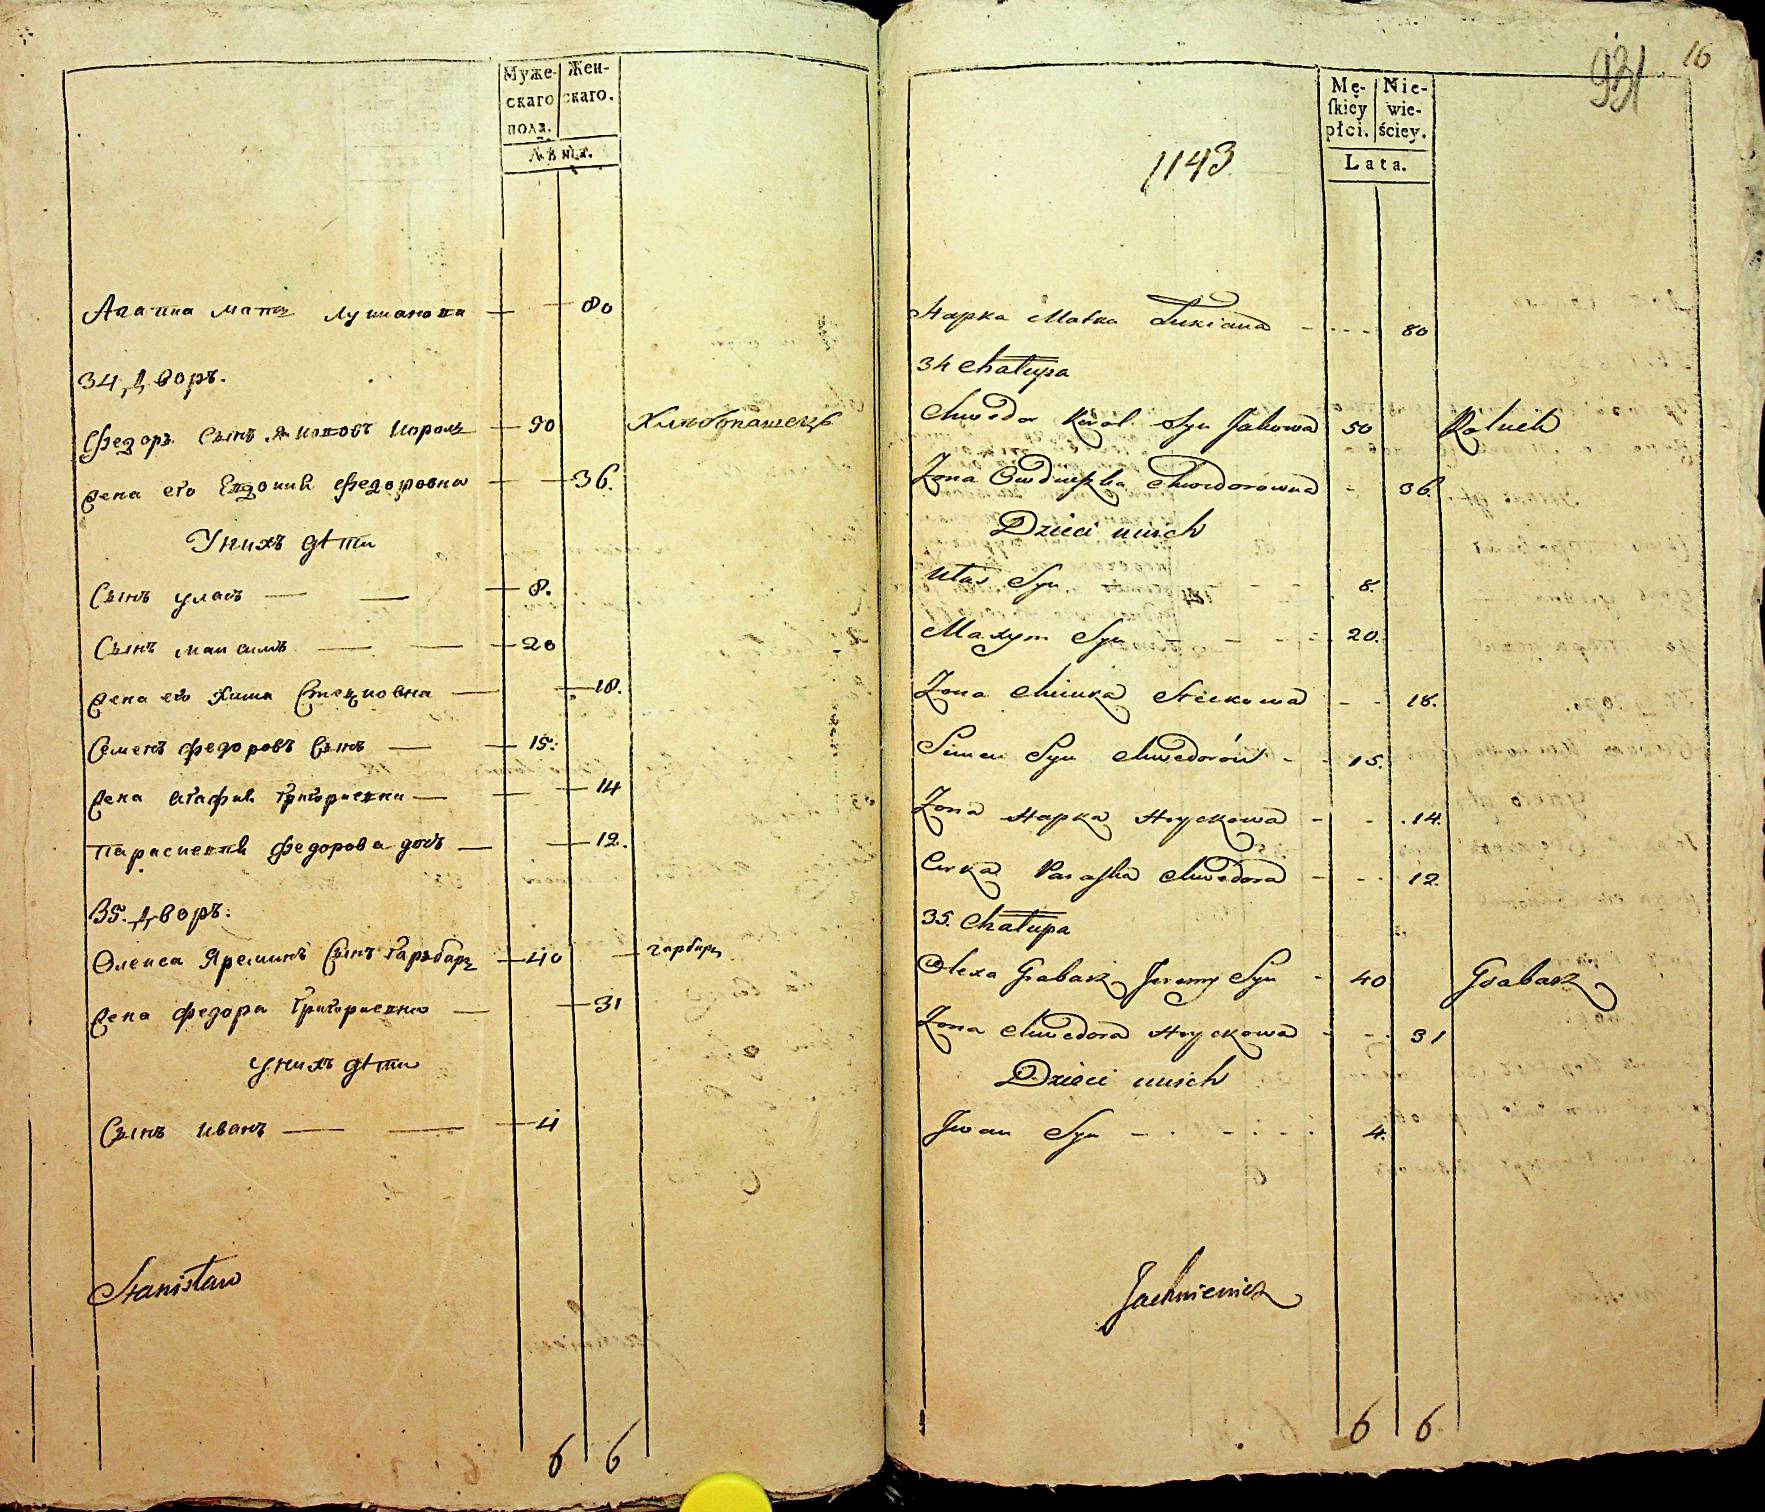 Муже-
скаго
пола.
Жен-
скаго.
Лѣта.
Агапиа мать Лукианова 80
34 Дворъ.
Федоръ Сынъ Якововъ Король 50 Хлѣбопашецъ
Жена его Евдокиѣ Федоровна 36.
У нихъ дѣти
Сынъ уласъ 8.
Сынъ максимъ 20
Жена его Химка Стецковна 18.
Семенъ Федоровъ Сынъ 15.
Жена Агафиѣ Григориевна 14
Парасковиѣ Федорова дочь 12.
35. Дворъ.
Олекса Яреминъ Сынъ Гарбарь 40 гарбарь
Жена Федора Григориевна 31
У нихъ дѣти
Сынъ Иванъ 4
Stanisław
6 6
931 16
Mę-
skiey
płci.
Nie-
wie-
ściey.
Lata.
1143
Hapka Matka Łukiana 80
34 Chałupa
Chwedor Korol Syn Jakowa 50 Rolnik
Żona Owdiuszka Chwedorowna 36.
Dzieci unich
Ułas Syn 8.
Maxym Syn 20.
Żona Chimka Steckowa 18.
Simen Syn Chwedorów 15.
Żona Hapka Hryckowa 14.
Curka Paraska Chwedora 12.
35. Chałupa
Olexa Grabarz Jeremy Syn 40 Grabarz
Żona Chwedora Hryckowa 31
Dzieci unich
Jwan Syn 4.
Jachniewicz
6 6